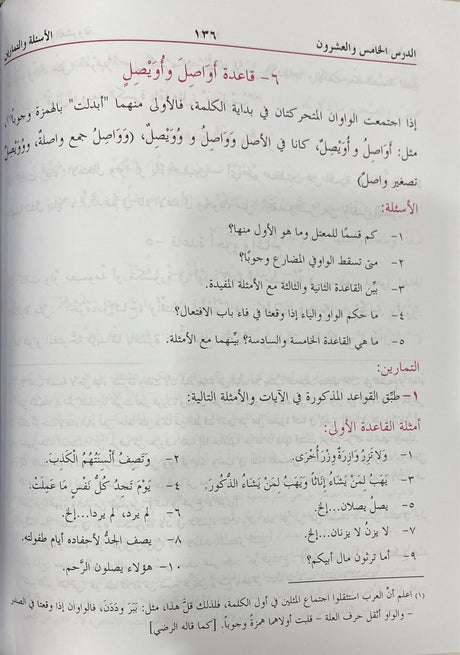 الدرس الخامس والعشرون ١٣٦ الأسئلة والتمارين
٦- قاعدة أَوَاصِلَ وأُوَيْصِلٍ
إذا اجتمعت الواوان المتحركتان في بداية الكلمة، فالأولى منهما "أبدلت" بالهمزة وجوباً(١)،
مثل: أَوَاصِلُ و أُوَيْصِلٌ، كانا في الأصل وَوَاصِلُ و وُوَيْصِلٌ، (وَوَاصِلُ جمع واصلة، ووُوَيْصِلٌ
تصغير واصلٌ)
الأسئلة:
١- كم قسمًا للمعتل وما هو الأول منها؟
٢- متى تسقط الواوفي المضارع وجوبا؟
٣- بيِّن القاعدة الثانية والثالثة مع الأمثلة المفيدة.
٤- ما حكم الواو والياء إذا وقعتا في فاء باب الافتعال؟
٥- ما هي القاعدة الخامسة والسادسة؟ بيِّنهما مع الأمثلة.
التمارين:
١- طبِّق القواعد المذكورة في الآيات والأمثلة التالية:
أمثلة القاعدة الأولى:
١- وَلَا تَزِرُ وَازِرَةٌ وِزْرَ أُخْرَى. ٢- وَتَصِفُ أَلْسِنَتُهُمُ الْكَذِبَ.
٣- يَهَبُ لِمَنْ يَشَاءُ إِنَاثًا وَيَهَبُ لِمَنْ يَشَاءُ الذُّكُورَ. ٤- يَوْمَ تَجِدُ كُلُّ نَفْسٍ مَا عَمِلَتْ.
٥- يصل يصلان...إلخ. ٦- لم يرد، لم يردا...إلخ.
٧- لا يزنُ لا يزنان...إلخ. ٨- يصف الجدُّ لأحفاده أيام طفولته.
٩- أما ترثون مال أبيكم؟ ١٠- هؤلاء يصلون الرَّحم.
(١) اعلم أنَّ العرب استثقلوا اجتماع المثلين في أول الكلمة، فلذلك قلَّ هذا، مثل: بَبَر ودَدَن، فالواوان إذا وقعتا في الصدر
- والواو أثقل حرف العلة - قلبت أولاهما همزةً وجوباً. [كما قاله الرضي]